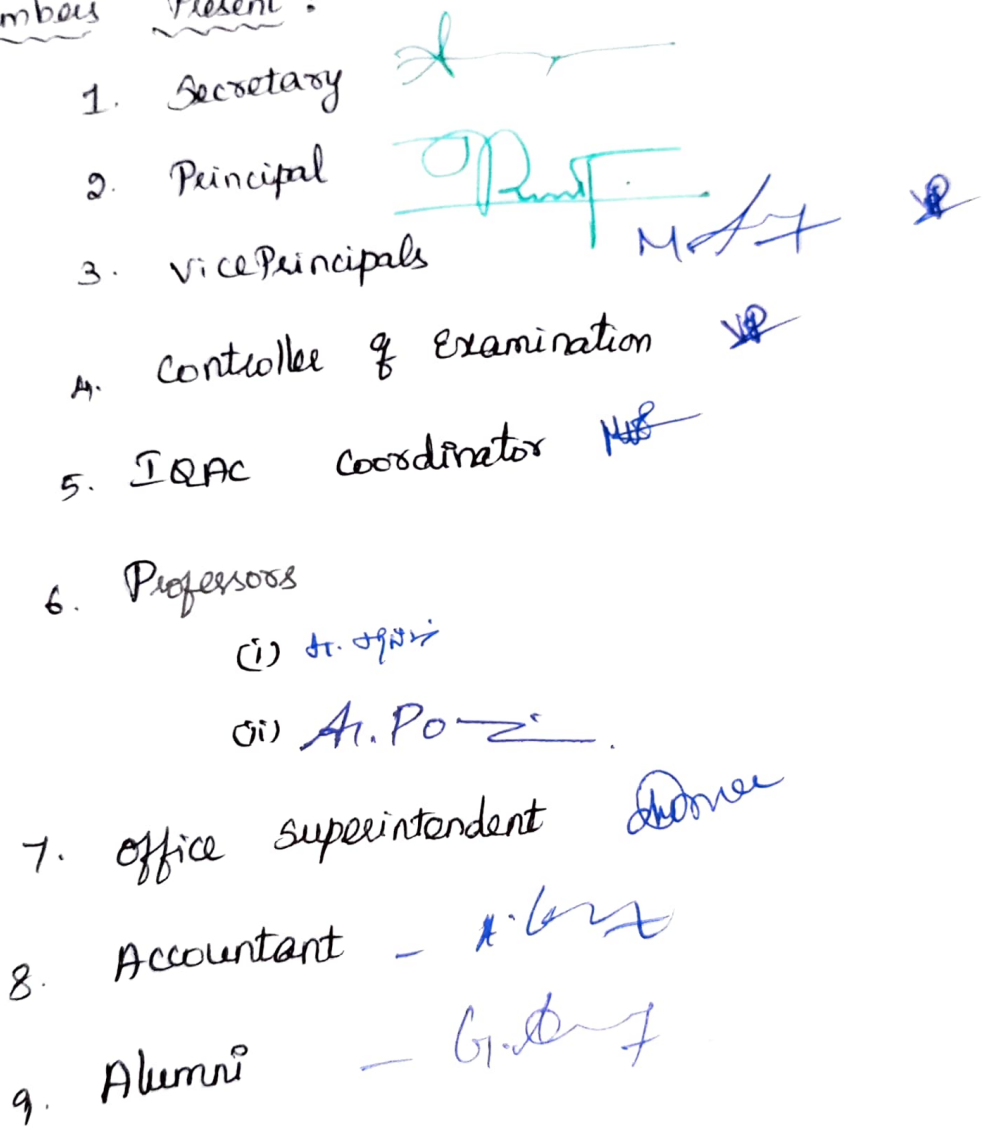 Present :
1. Secretary
2. Principal
3. Vice Principals
4. Controller of Examination
5. IQAC Coordinator
6. Professors
(i)
(ii) A. Po
7. Office Superintendent
8. Accountant -
9. Alumni -